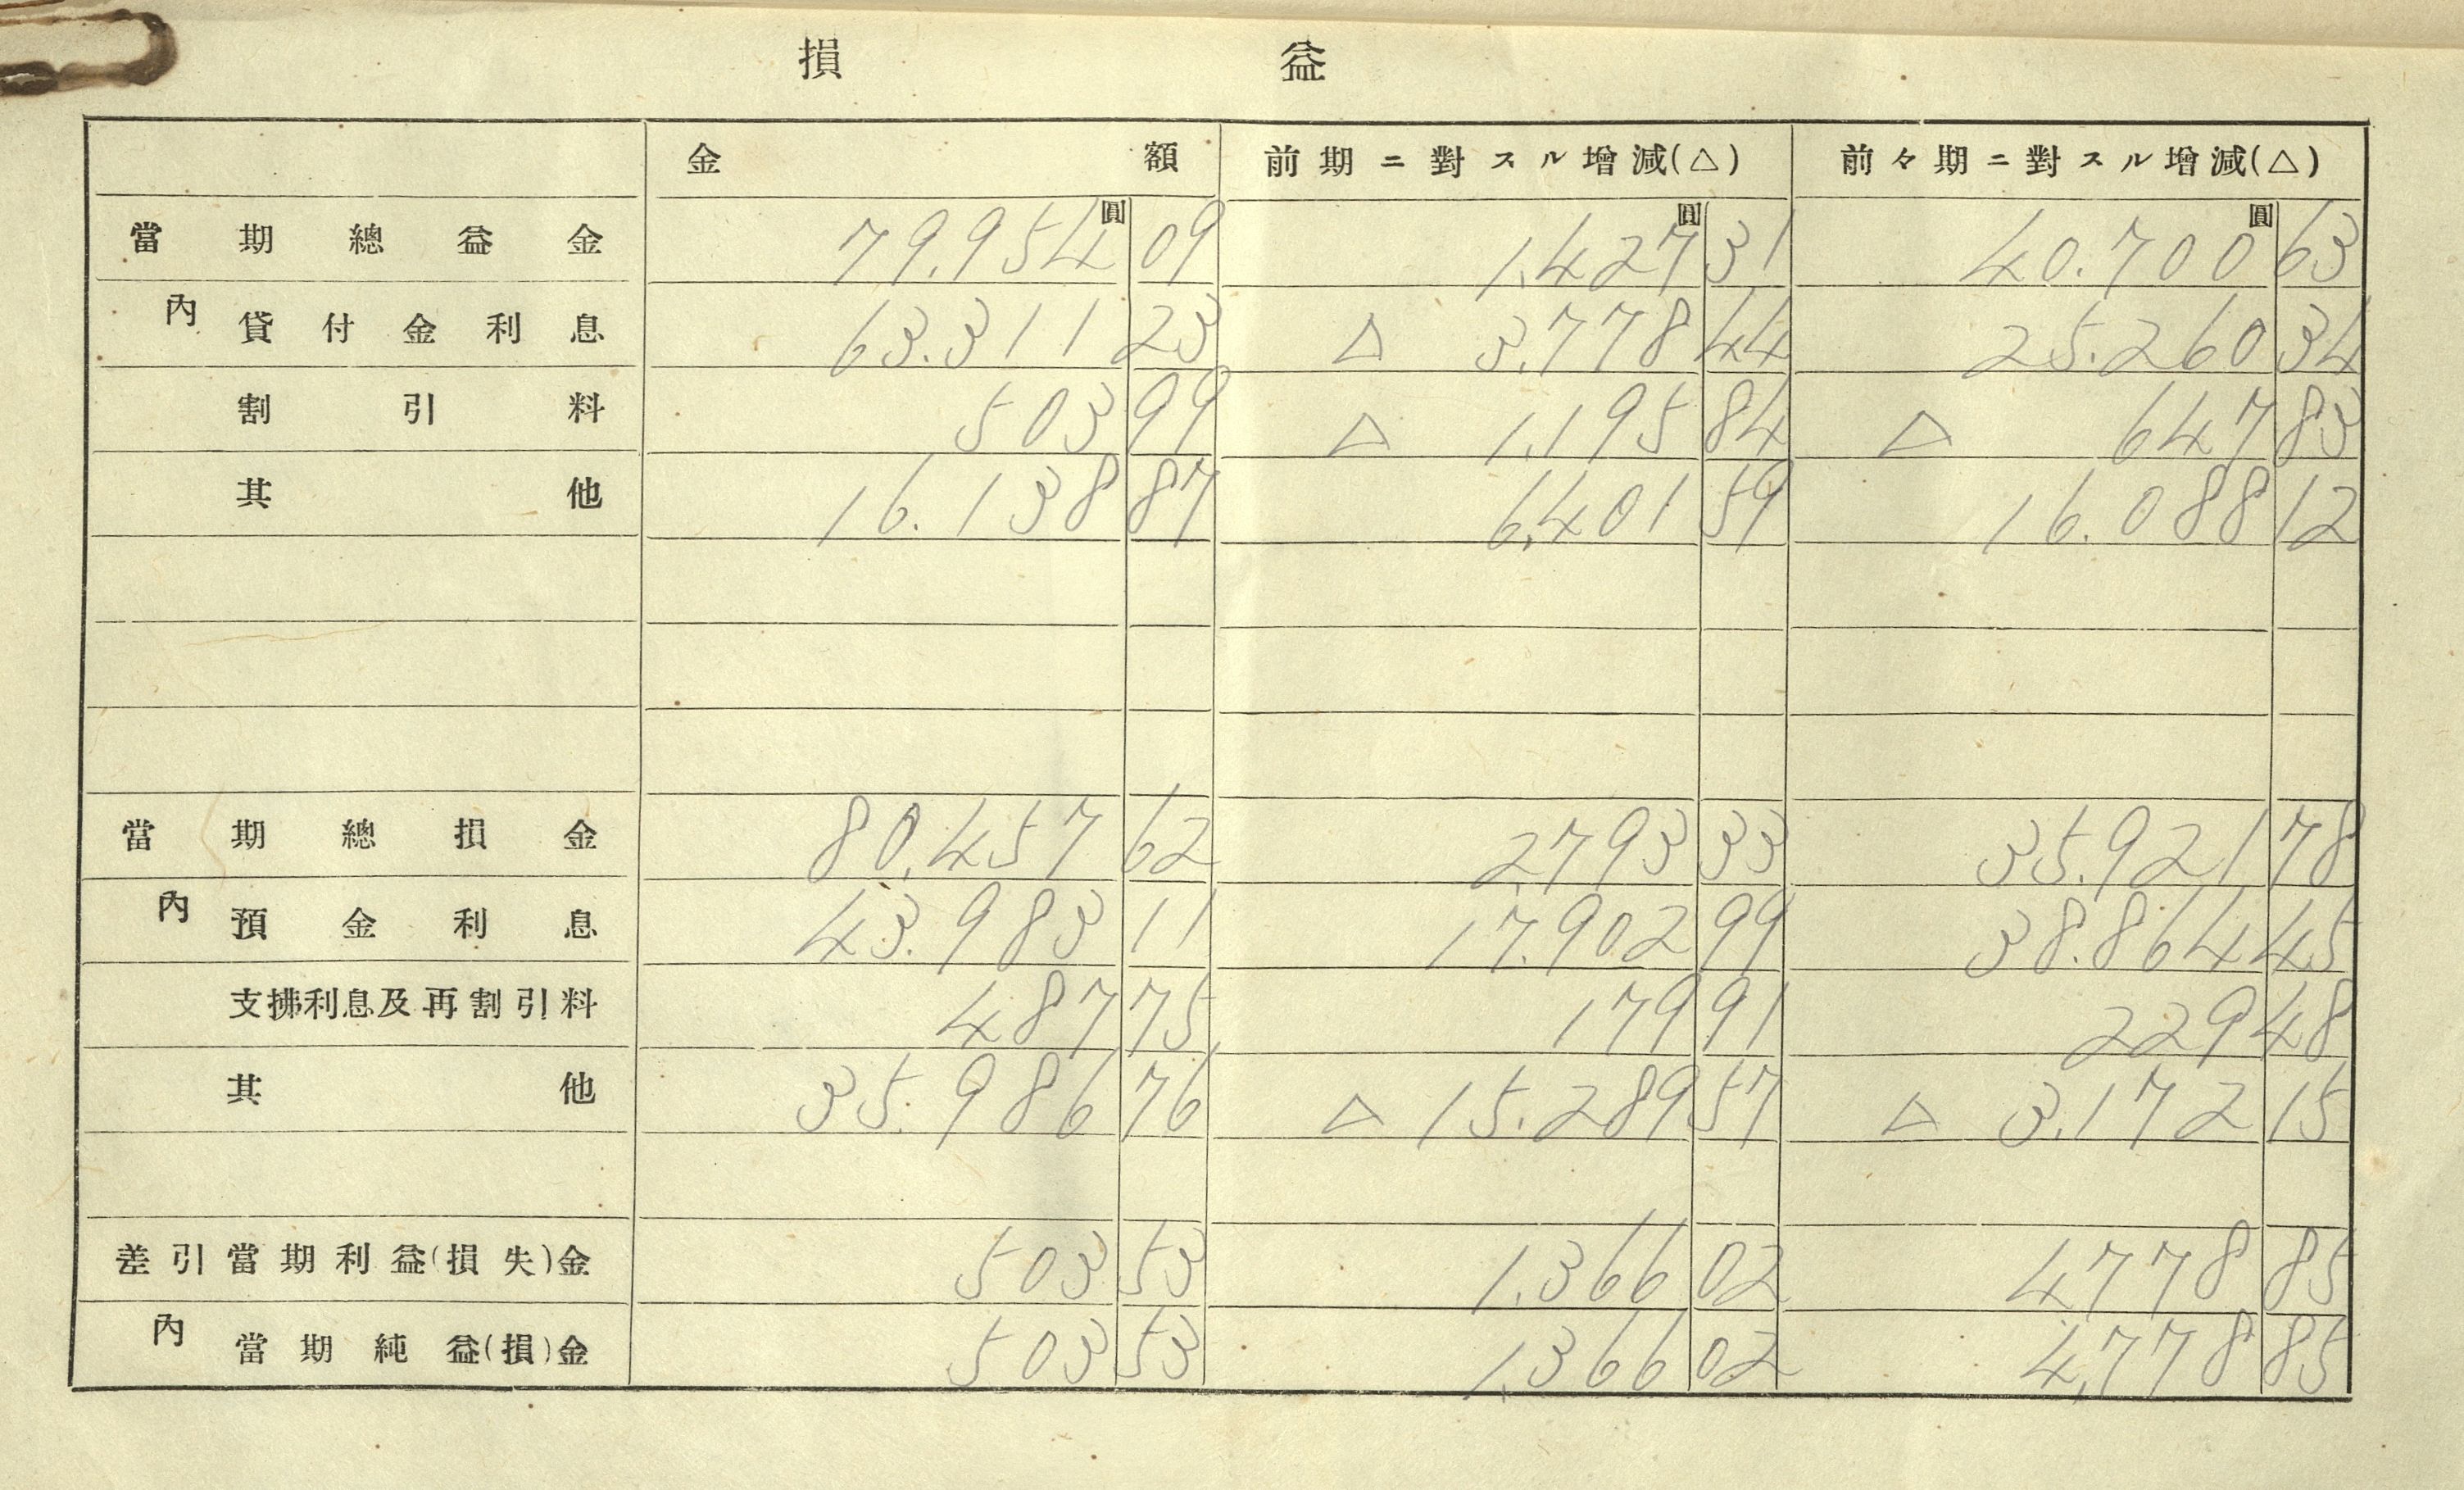 損益
金額 前期ニ對スル增減(△) 前々期ニ對スル增減(△)
當期總益金 79.954圓09 1,427圓31 40.700圓63
內 貸付金利息 63.311 23 △ 3.778 44 25.260 34
割引料 503 99 △ 1,195 84 △ 647 83
其他 16.138 87 6,401 59 16.088 12
當期總損金 80.457 62 2,793 33 35.921 78
內 預金利息 43.983 11 17.902 99 38.864 45
支拂利息及再割引料 487 75 179 91 229 48
其他 35.986 76 △ 15.289 57 △ 3.172 15
差引當期利益(損失)金 503 53 1.366 02 4,778 85
內 當期純益(損)金 503 53 1,366 02 4,778 85